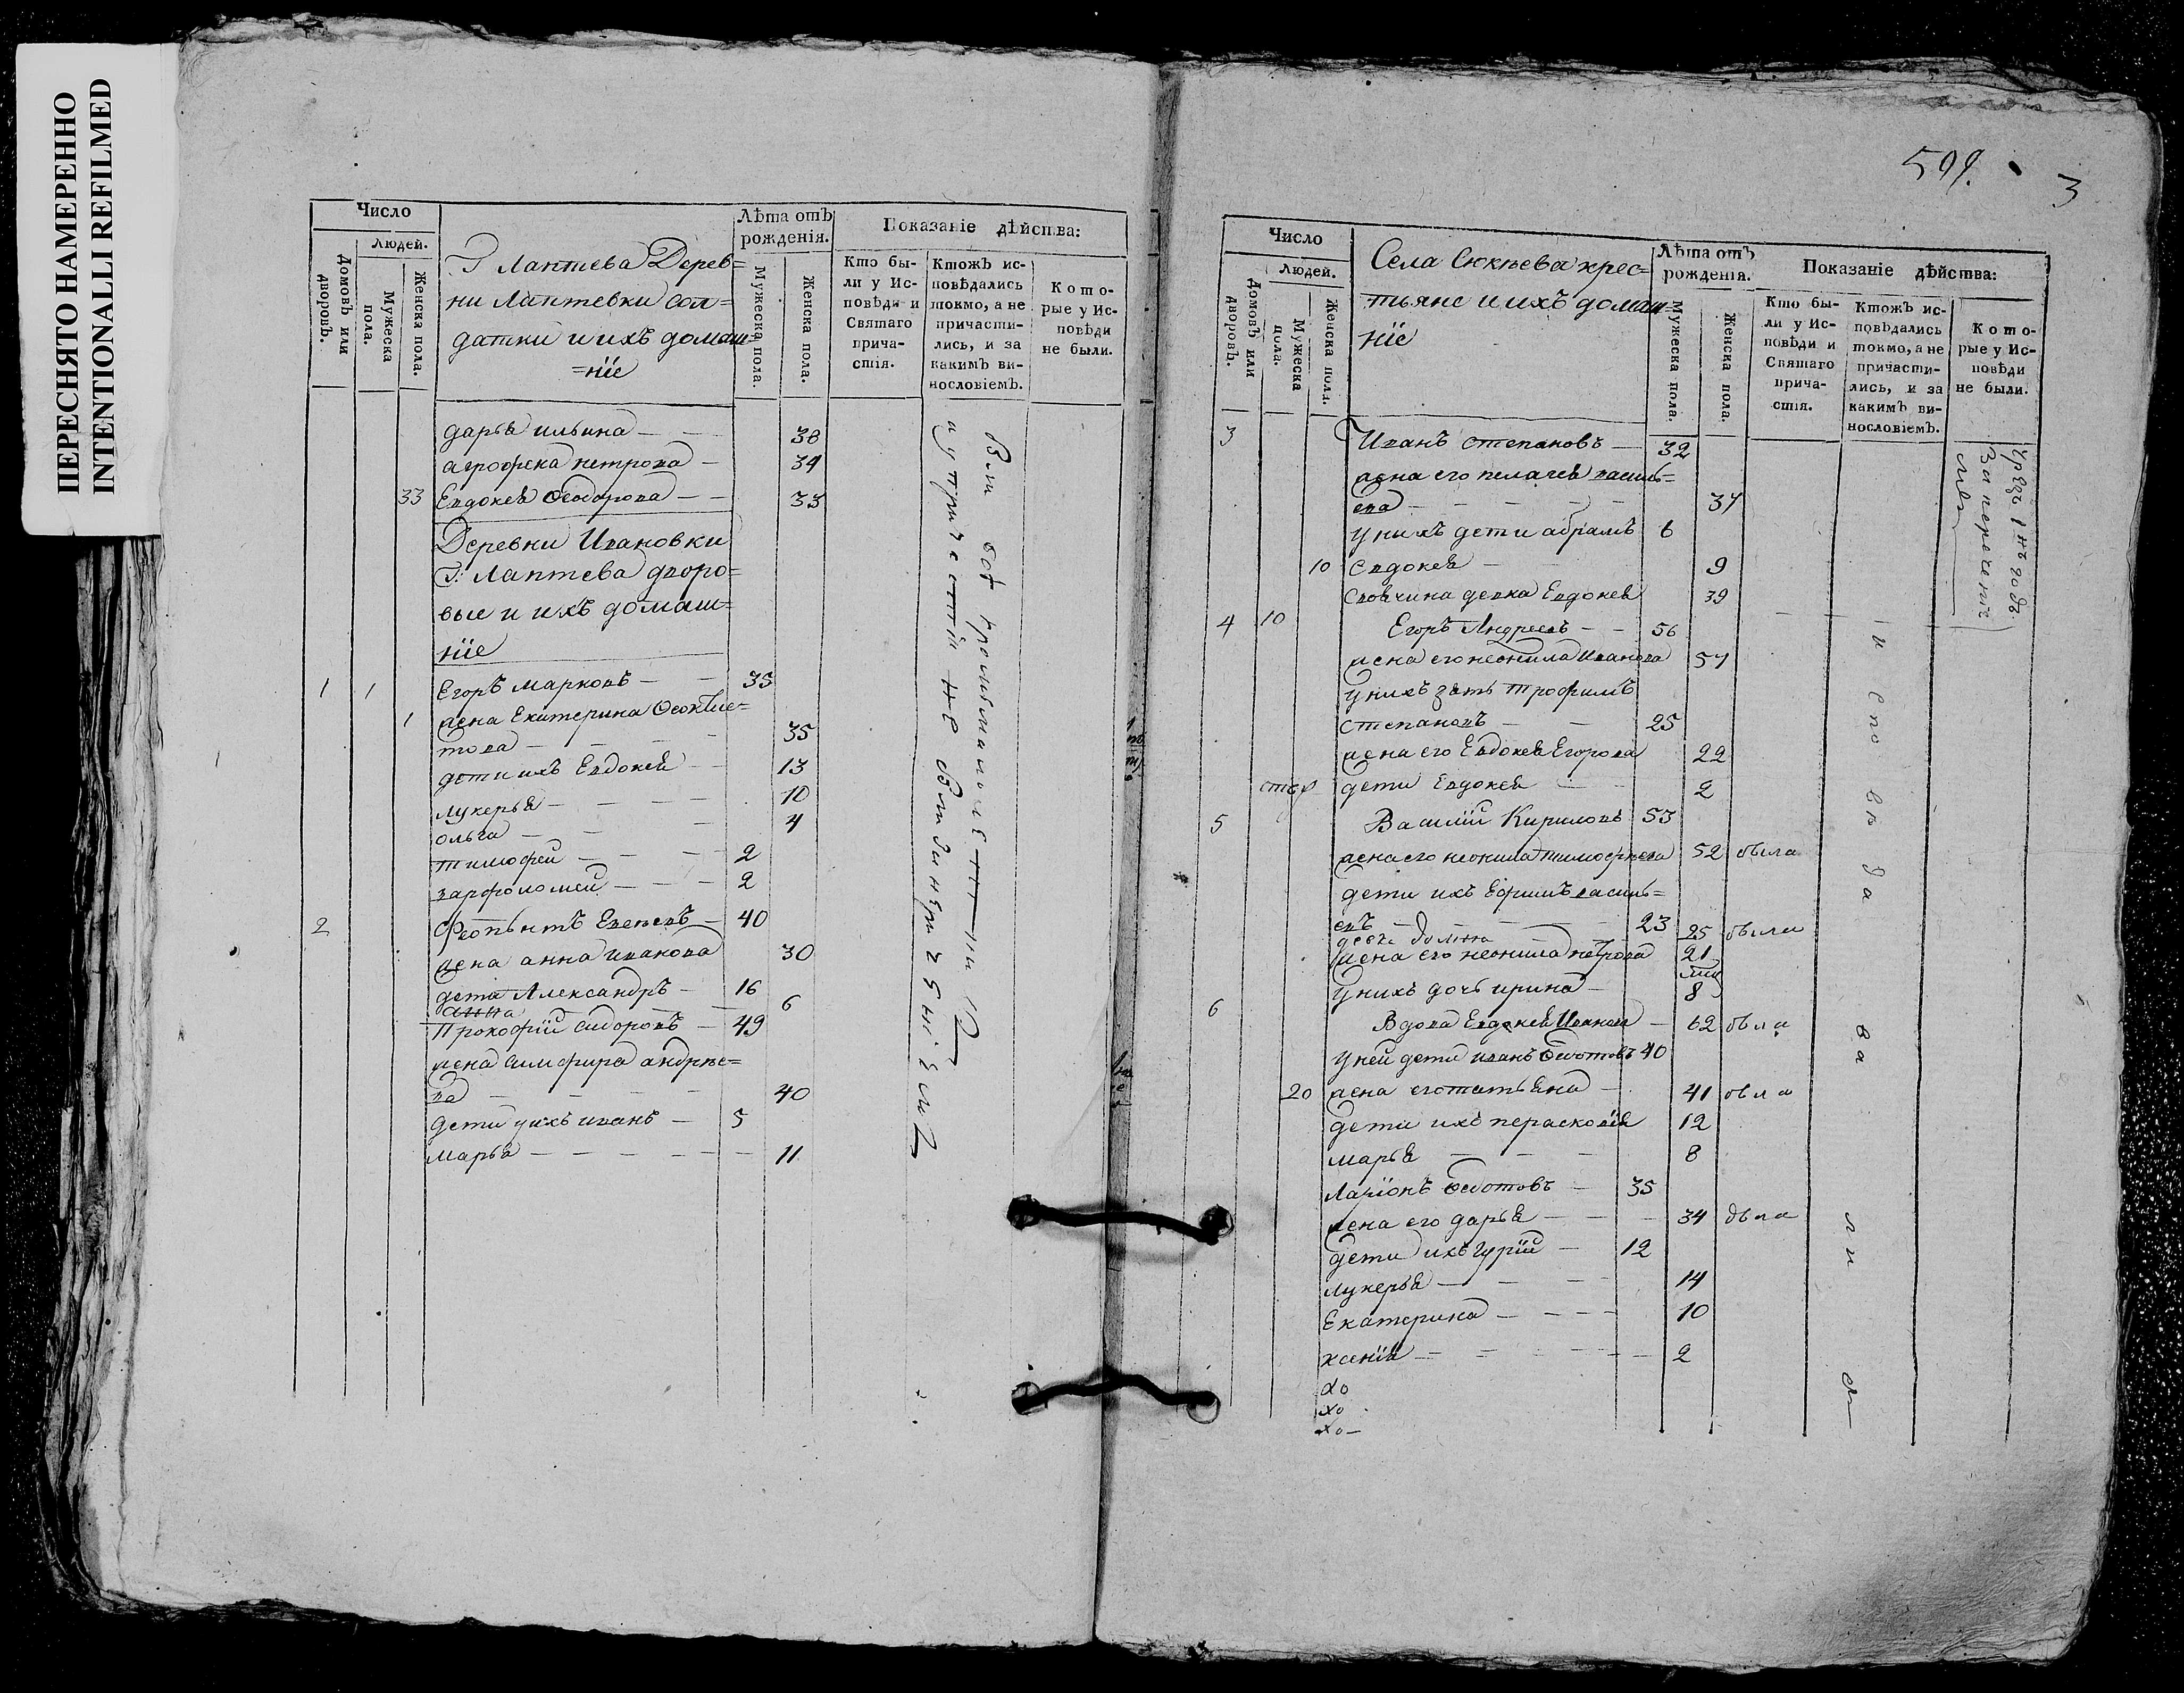 ПЕРЕСНЯТО НАМЕРЕННО
INTENTIONALLI REFILMED
Число
Людей.
Домовъ или дворовъ.
Мужеска пола.
Женска пола.
Г Лаптева Дерев=
ни Лаптевки сол=
датки и ихъ домаш=
=нїе
Лѣта отъ рожденія.
Мужеска пола.
Женска пола.
Показаніе дѣйства:
Кто бы-
ли у Ис-
повѣди и
Святаго
прича-
стія.
Ктожъ ис-
повѣдались
токмо, а не
причасти-
лись, и за
какимъ ви-
нословіемъ.
Кото-
рые у Ис-
повѣди
не были.
дарья ильина — 38
агрофена петрова — 34
33 Евдокея Ѳеодорова — — 33
Деревни Ивановки
Г: Лаптева дворо=
вые и ихъ домаш=
нїе
1 1 Егоръ марковъ — — 35
1 жена Екатерина Ѳеоктис=
това — — — 35
дети ихъ Евдокея — 13
лукерья — — — 10
ольга — — — 4
тимофеи — — — 2
варфоломеи — — — 2
2 — 40
жена анна иванова 30
дети Александръ — 16
анна — 6
Прокофїй сидоровъ — 49
жена андрѣе=
ва — — — 40
дети ихъ иванъ — 5
марья — — — — — 11
509.
3
Число
Людей.
Домовъ или дворовъ.
Мужеска пола.
Женска пола.
Села Сюкѣева крес=
тьяне и ихъ домаш=
нїе
Лѣта отъ рожденія.
Мужеска пола.
Женска пола.
Показаніе дѣйства:
Кто бы-
ли у Ис-
повѣди и
Святаго
прича-
стія.
Ктожъ ис-
повѣдались
токмо, а не
причасти-
лись, и за
какимъ ви-
нословіемъ.
Кото-
рые у Ис-
повѣди
не были.
3 Иванъ степановъ — 32
жена его пелагея василь=
ева — — — — 37
у нихъ дети абрамъ 6
10 евдокея — — 9
девка Евдокея 39
4 10 Егоръ Андреевъ — — 56
жена его неонила Иванова 57
у нихъ зять трофимъ
степановъ — — 25
жена его Евдокея Егорова 22
дети Евдокея — — 2
5 Василїи Кириловъ 53
жена его неонила тимофѣева 52 была
дети ихъ Ефимъ василь=
евъ — — — 23
девка домна 25 были
жена его неонила петрова 21
у нихъ дочь ирина — 8
6 Вдова Евдокея Иванова — 62 была
у ней дети иванъ Ѳедотовъ 40
20 жена его татьяна — 41 была
дети ихъ перасковїя 12
марья — — — 8
Ларїонъ Ѳедотовъ — 35
жена его дарья — — — 34 была
дети ихъ гурїй — 12
лукерья — — — 14
Екатерина — — — — 10
ксенїя — — — — — — 2
исповѣдавались